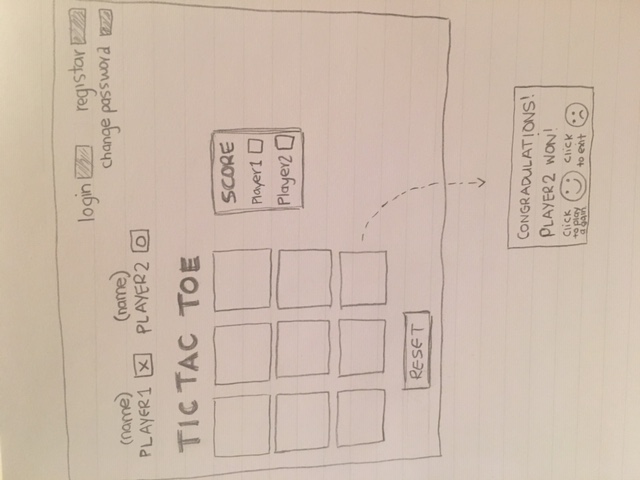 login registar
change password
(name) (name)
PLAYER1 X PLAYER2 O
TIC TAC TOE
SCORE
Player1
Player2
RESET
CONGRADULATIONS!
PLAYER2 WON!
click to play again
click to exit